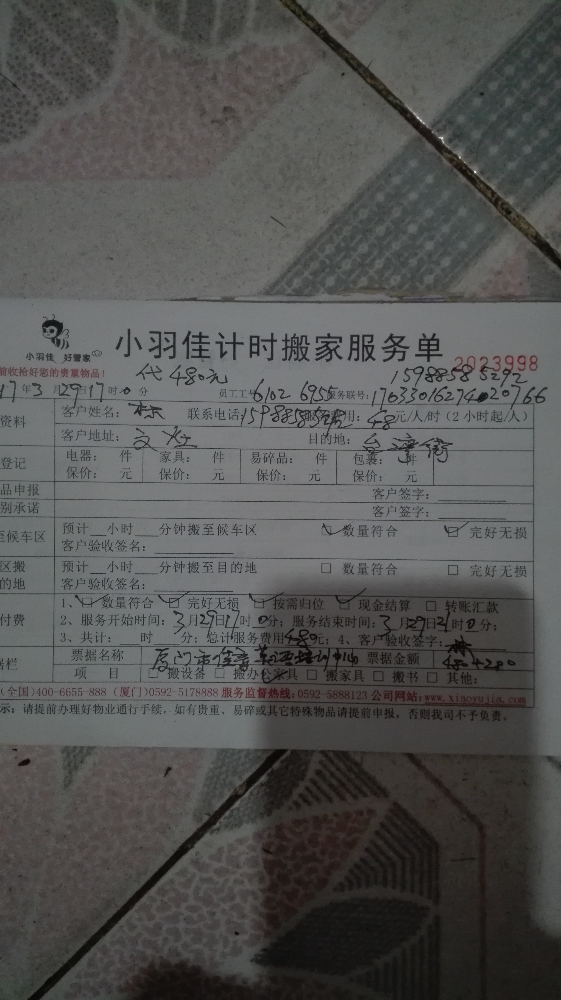 小羽佳 好管家
小羽佳计时搬家服务单
2023998
前收拾好您的贵重物品!
代480元
15988585292
17年3月29日17时0分 员工工号6102 6955服务联号:
客户姓名:林 联系电话: 用:48元/人/时(2小时起/人)
资料
客户地址: 目的地:
登记
电器: 件 家具: 件 易碎品: 件 包裹: 件
保价: 元 保价: 元 保价: 元 保价: 元
品申报 客户签字:
别承诺 客户签字:
至候车区
预计__小时___分钟搬至候车区 数量符合 完好无损
客户验收签名:
区搬
预计__小时___分钟搬至目的地 □ 数量符合 □ 完好无损
的地
客户验收签名:
1、数量符合 完好无损 按需归位 现金结算 □ 转账汇款
付费
2、服务开始时间:3月29日17时0分;服务结束时间:3月29日21时0分;
3、共计:___时___分;总计服务费用480元;4、客户验收签字:林
票据名称 厦门市佳音 培训中心 票据金额 480+280
据栏
项 目 □ 搬设备 □ 搬办公家具 □ 搬家具 □ 搬书 □ 其他:
(全国)400-6655-888 (厦门)0592-5178888 服务监督热线:0592-5888123 公司网站:www.xiaoyujia.com
示:请提前办理好物业通行手续,如有贵重、易碎或其它特殊物品请提前申报,否则我司不予负责。